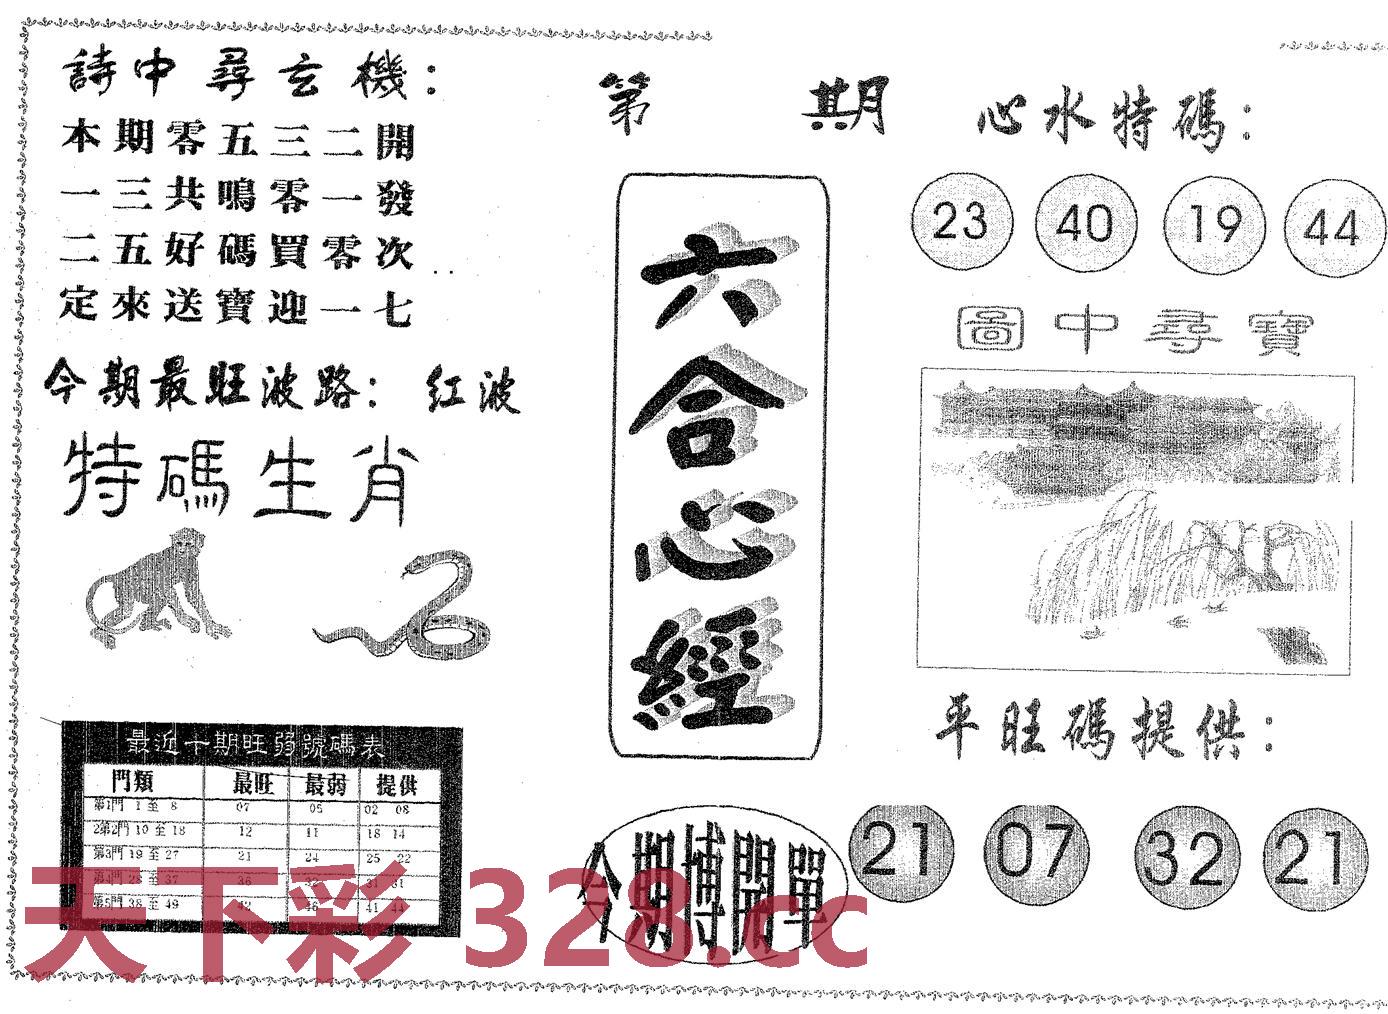 詩中尋玄機：
本期零五三二開
一三共鳴零一發
二五好碼買零次
定來送寶迎一七
今期最旺波路：红波
特碼生肖
最近十期旺弱號碼表
門類 最旺 最弱 提供
第1門 1 至 8 07 05 02 08
2第2門 10 至 18 12 11 18 14
第3門 19 至 27 21 24 25 22
第4門 28 至 37 36 32 31 31
第5門 38 至 49 42 46 41 44
第 期
六合心經
今期博開單
心水特碼：
23 40 19 44
圖中尋寶
平旺碼提供：
21 07 32 21
天下彩 328.cc